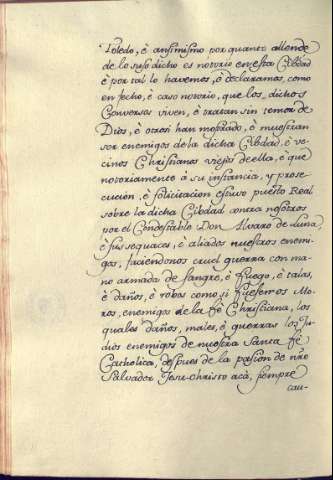 Toledo, è ansimismo por quanto allende
de lo suso dicho es notorio en esta Cibdad
è por tal lo havemos, è declaramos, como
en fecho, è caso notorio, que los dichos
Conversos viven, è tratan sin temor de
Dios, è otrosi han mostrado, è muestran
ser enemigos de la dicha Cibdad, è ve-
cinos Christianos viejos de ella, è que
notoriamente à su instancia, y prose-
cución, è solicitacion estuvo puesto Real
sobre la dicha Cibdad contra nosotros
por el Condestable Don Alvaro de Luna,
è sus sequaces, è aliados nuestros enemi-
gos, faciendonos cruel guerra con ma-
no armada de sangre, è fuego, è talas,
è daños, è robos como si fuesemos Mo-
ros, enemigos de la fé Christiana, los
quales daños, males, è guerras los Ju-
dios enemigos de nuestra Santa fé
Catholica, despues de la pasion de nr̃o
Salvador Jesu-Christo acà, siempre
cau-